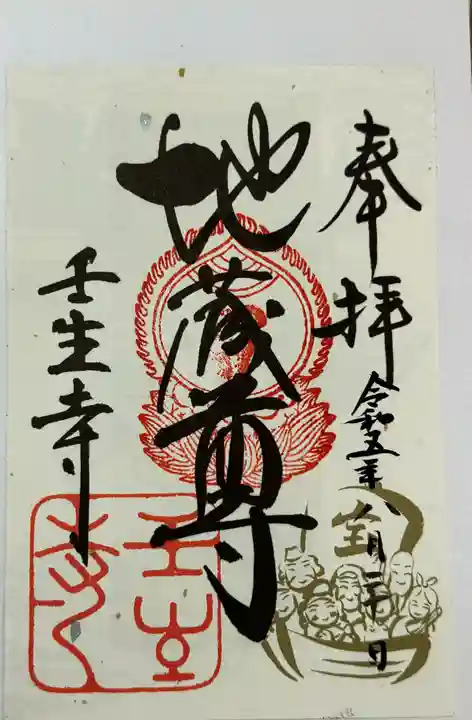 奉拝
令和五年八月二十日
地蔵尊
壬生寺
宝